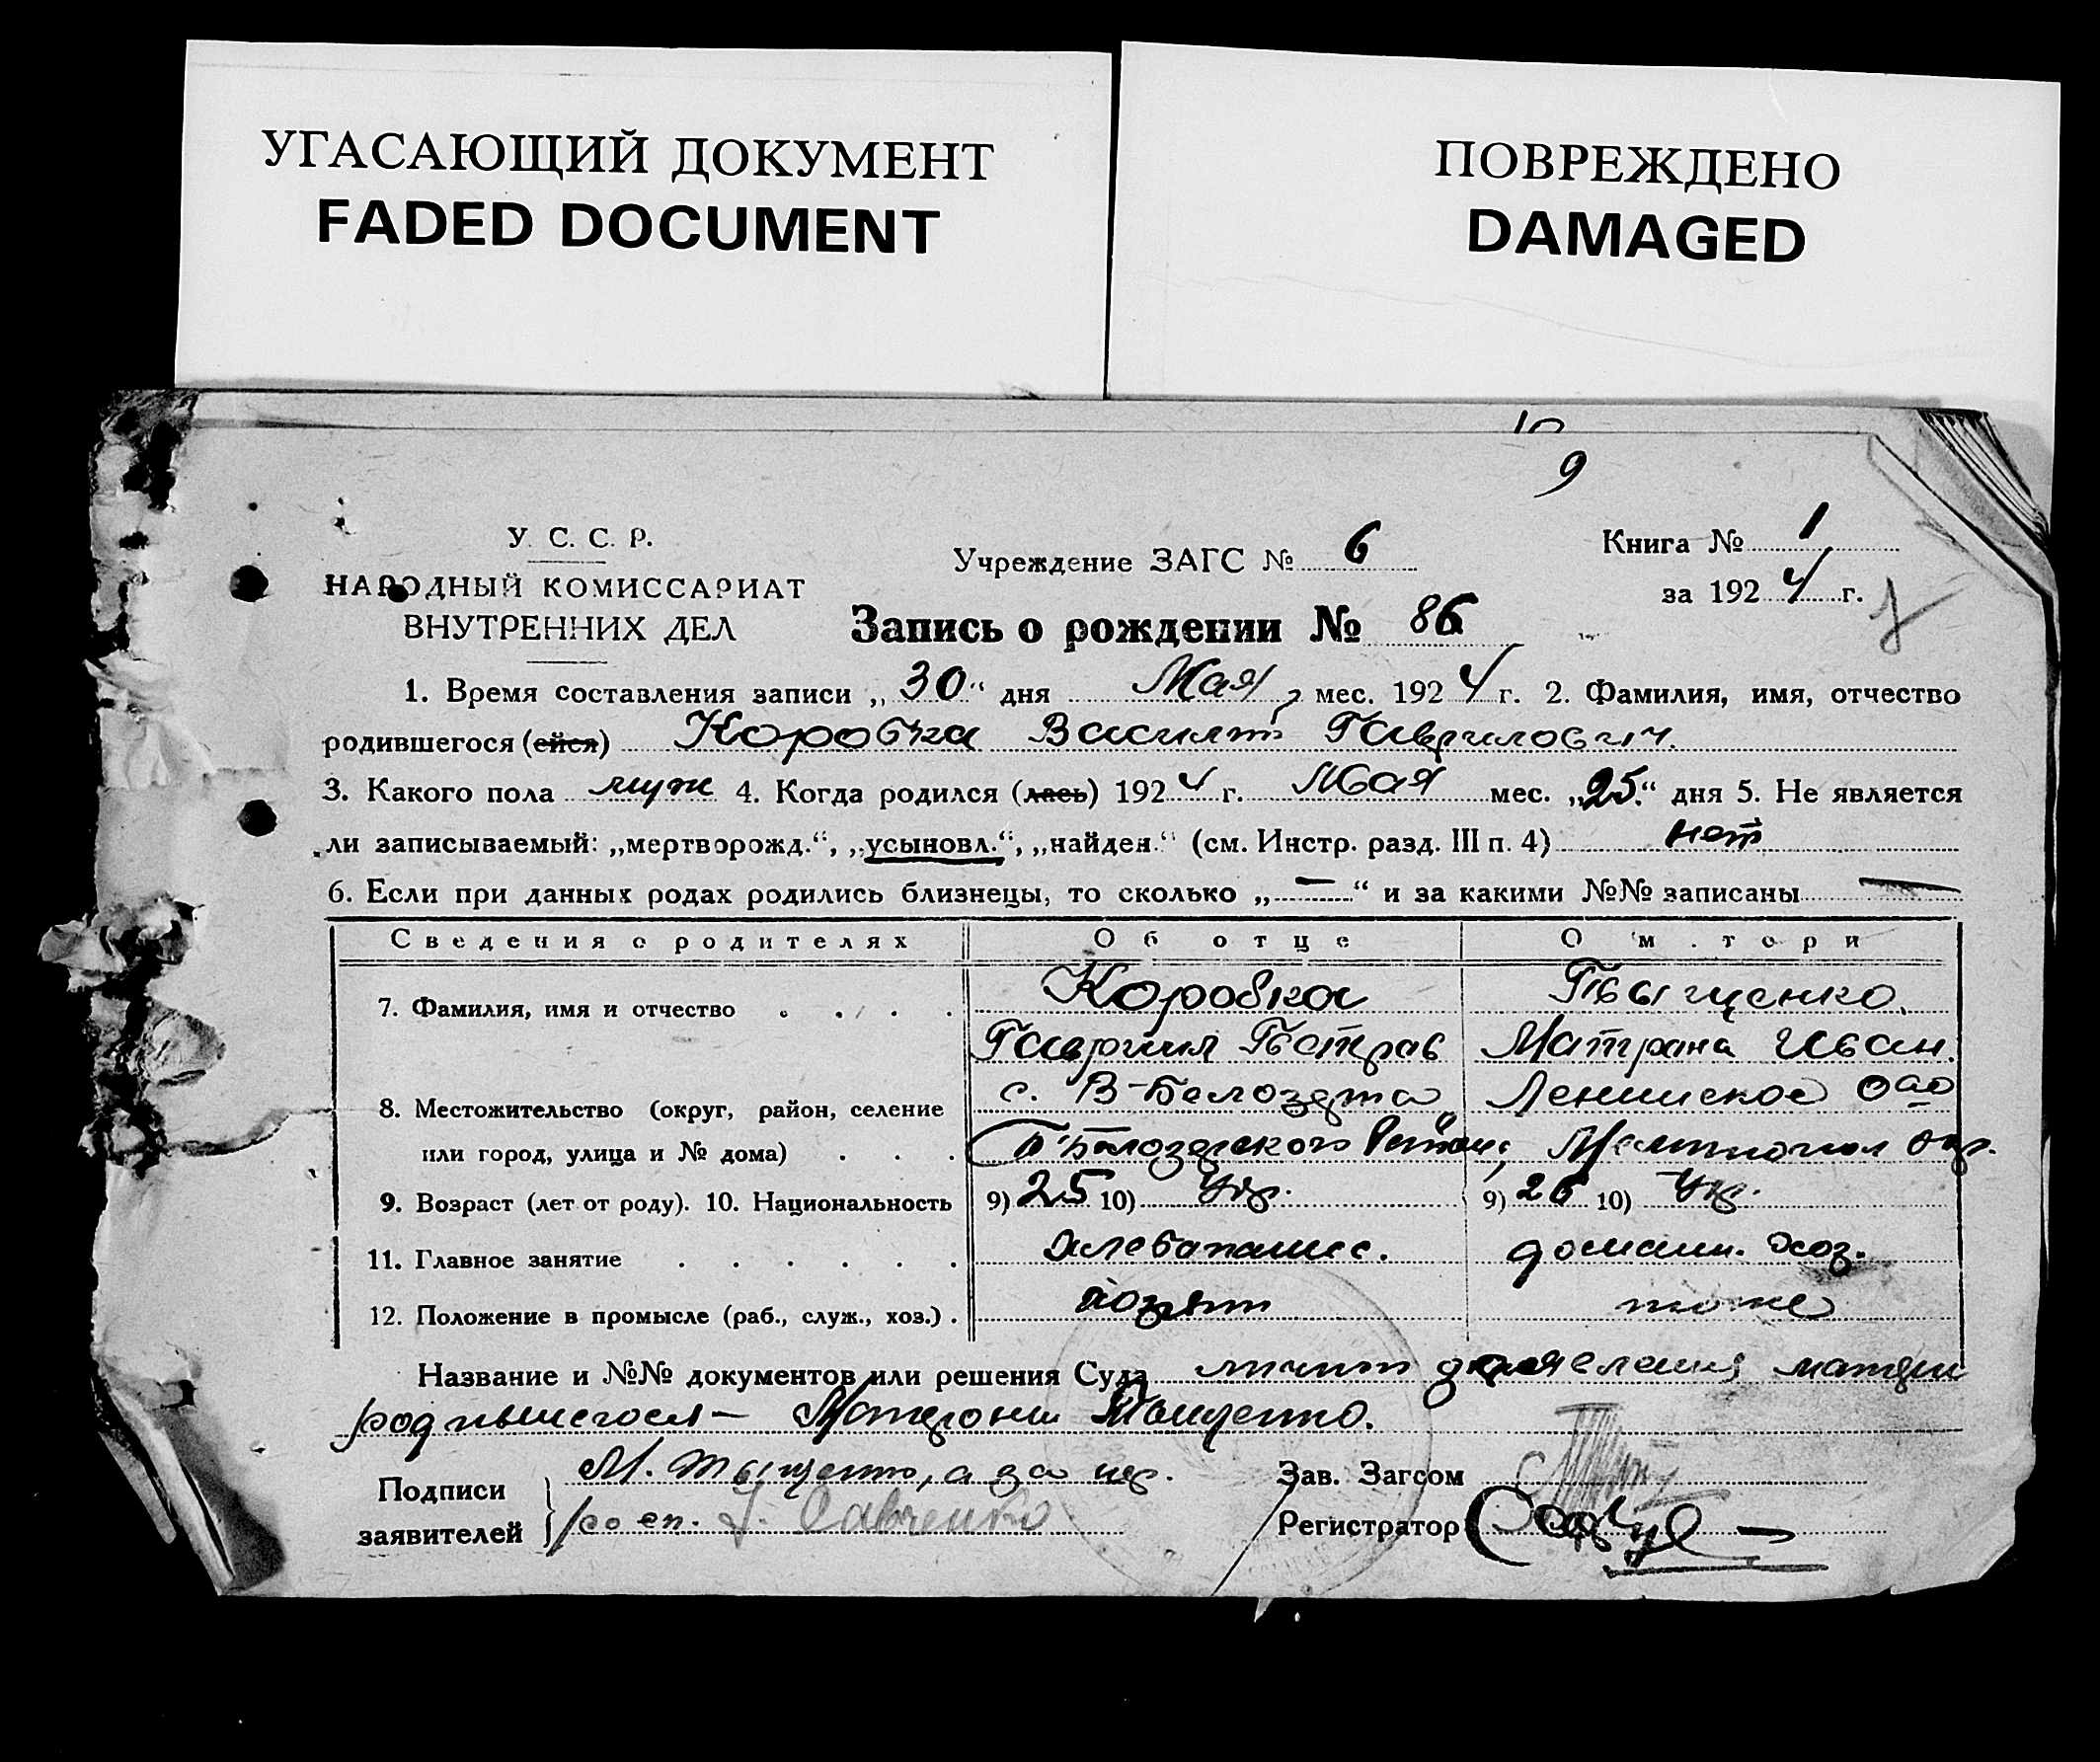 УГАСАЮЩИЙ ДОКУМЕНТ
FADED DOCUMENT
ПОВРЕЖДЕНО
DAMAGED
10
9
У. С. С. Р.
НАРОДНЫЙ КОМИССАРИАТ
ВНУТРЕННИХ ДЕЛ
Учреждение ЗАГС № 6
Книга № 1
за 1924 г.
Запись о рождении № 86
1. Время составления записи „30“ дня Мая мес. 1924 г. 2. Фамилия, имя, отчество
родившегося (ейся) Коровка Василий Гаврилович.
3. Какого пола муж 4. Когда родился (лась) 1924 г. Мая мес. „25.“ дня 5. Не является
ли записываемый: „мертворожд.“, „усыновл.“, „найден.“ (см. Инстр. разд. III п. 4) нет
6. Если при данных родах родились близнецы, то сколько „—“ и за какими №№ записаны —
Сведения о родителях Об отце О м.тери
7. Фамилия, имя и отчество Коровка Тыщенко
Гавриил Петров Матрона Иван.
8. Местожительство (округ, район, селение с. В-Белозерка
или город, улица и № дома) В Белозерского Района Мелитопол окр.
9. Возраст (лет от роду). 10. Национальность 9) 25 10) Укр. 9) 26 10) Укр.
11. Главное занятие хлебопашес. домашн. хоз.
12. Положение в промысле (раб., служ., хоз.) хозяин тоже
Название и №№ документов или решения Суда матери
родившегося — Матроны Тыщенко.
Подписи
заявителей
М. Тыщенко, а за нег.
росп. Савченко
Зав. Загсом
Регистратор